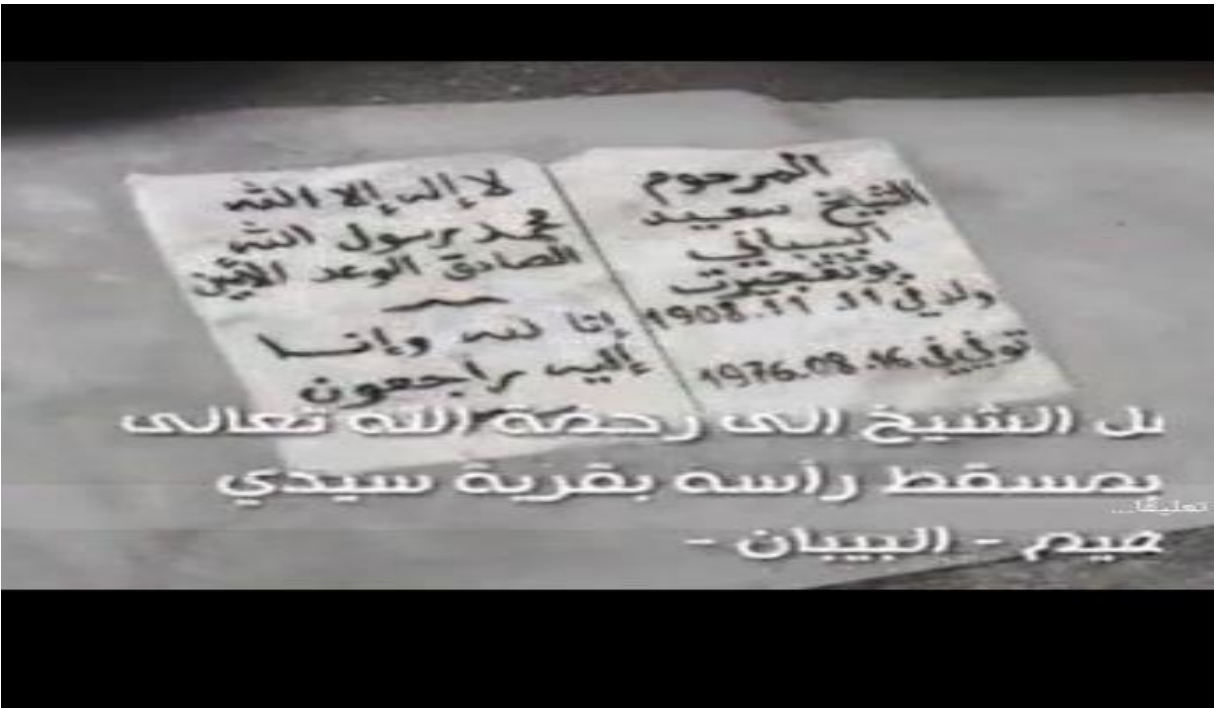 المرحوم
الشيخ سعيد
البيباني
ولد في 11.11.1908
توفي في 16.08.1976
لا إله إلا الله
محمد رسول الله
الصادق الوعد الأمين
إنا لله وإنا
إليه راجعون
الشيخ الى رحمة الله تعالى
بمسقط رأسه بقرية سيدي
تعليقًا...
- البيبان -